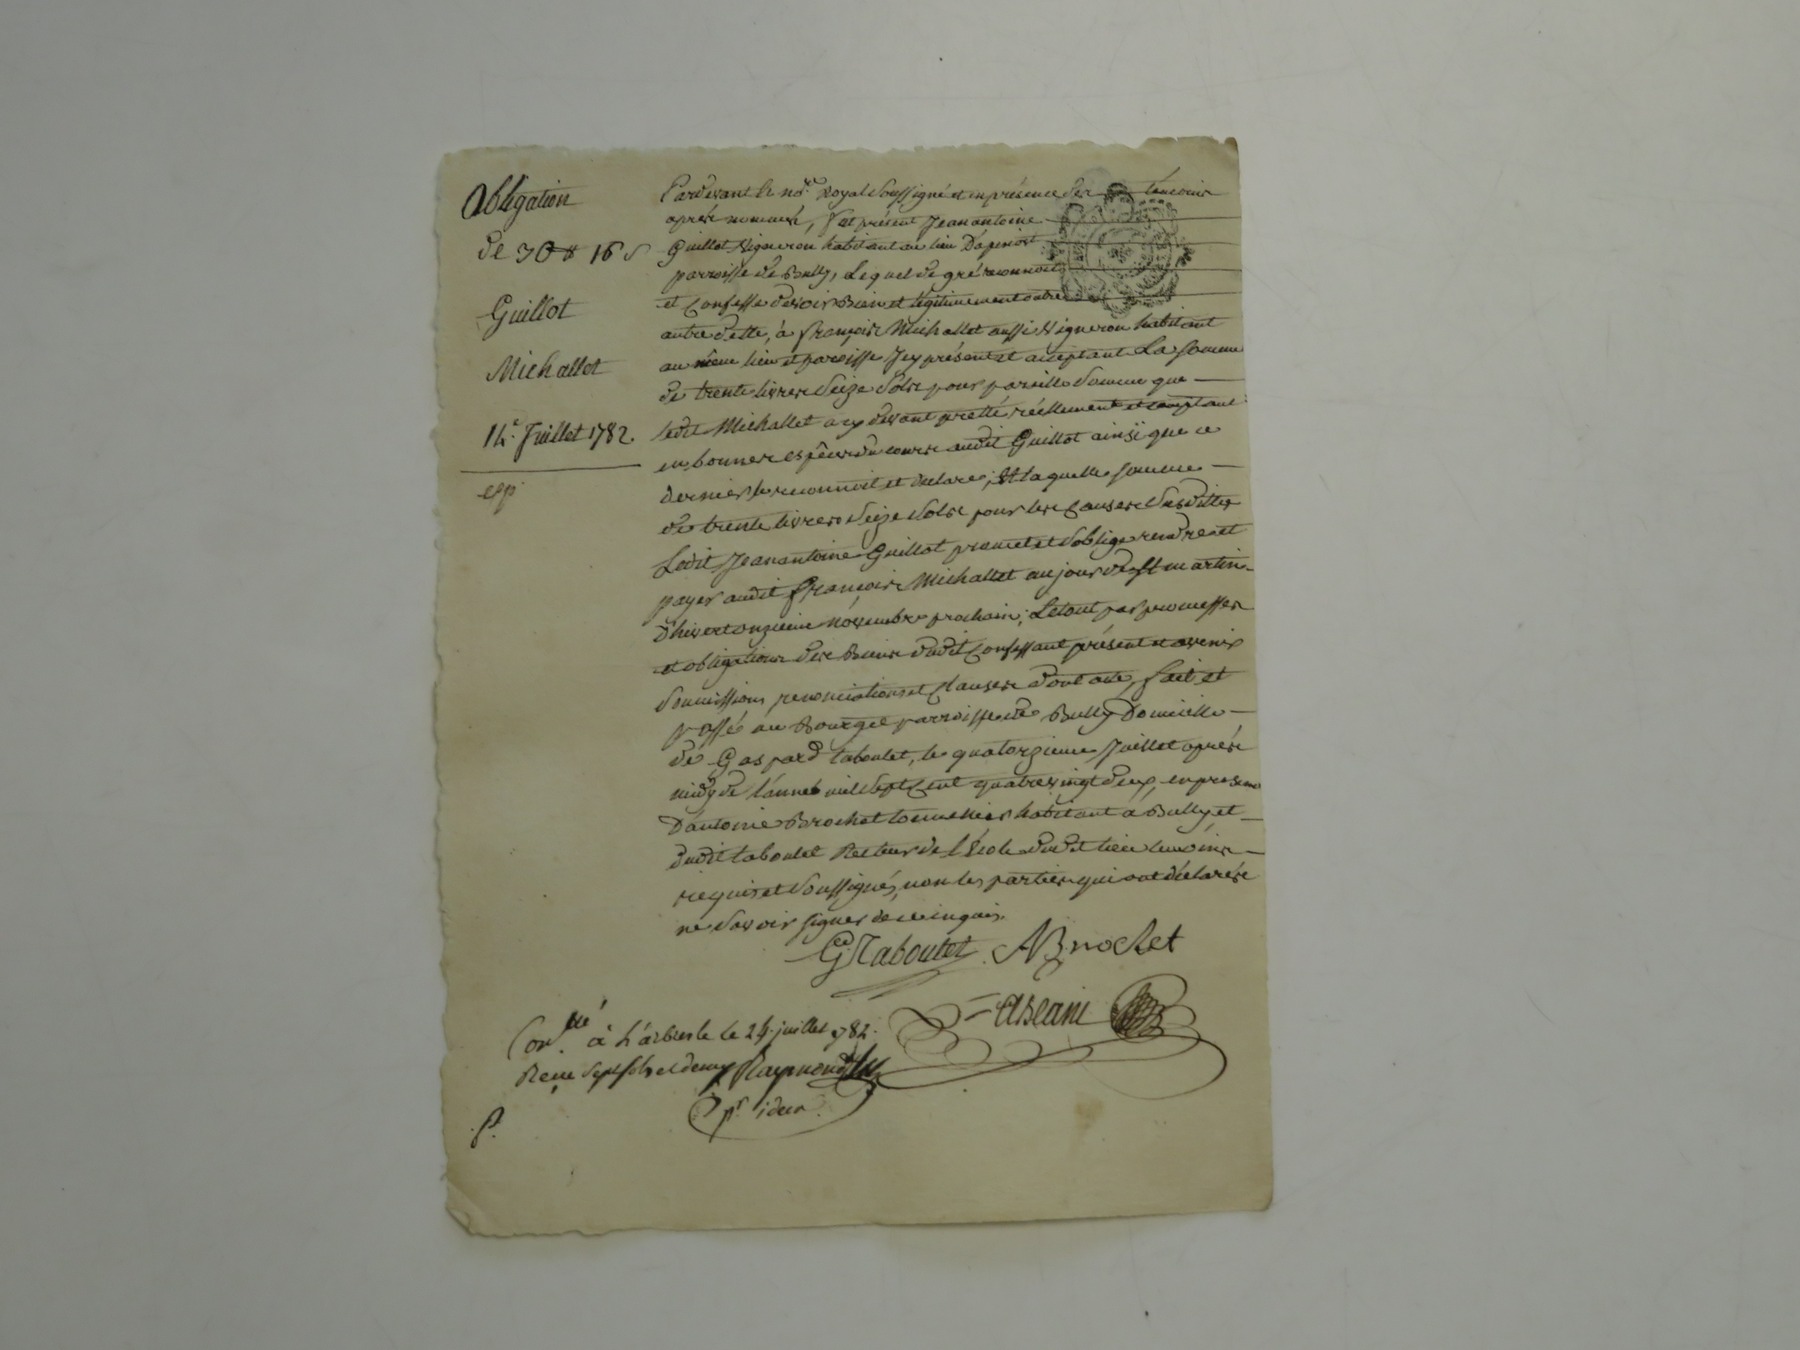 Obligation
de 30# 16 s
Guillot
Michallet
14e. Juillet 1782.
exp
Pardevant le nore. royal soussigné et en présence des témoins
après nommés, fut présent Jeanantoine
Guillot vigneron habitant au lieu D'apinost
parroisse de Bully, Lequel de gré reconnoit
et confesse devoir Bien et légitimement outre
autre dette, à françois Michallet aussi vigneron habitant
au même lieu et paroisse Icy présent et acceptant La somme
de trente livres seize sols pour pareille somme que
ledit Michallet a cy devant pretté réellement et comptant
en bonnes espèces du cours audit Guillot ainsi que ce
dernier le reconnoit et declare, Et laquelle somme
de trente livres seize sols pour les Causes susdittes
Ledit Jeanantoine Guillot promet et s'oblige rendre et
payer audit françois Michallet au jour de st martin
D'hivert onzieme novembre prochain; Letout par promesses
et obligations des Biens dudit Confessant présent et avenir
soumissions renonciations et Clauses dont acte, fait et
passé au Bourg et parroisse de Bully Domicille
de Gaspard taboulet, le quatorzieme Juillet après
midy de l'année mil sept Cent quatrevingt deux, en presence
D'antoine Brochet tonnellier habitant à Bully et
dudit taboulet Recteur de l'École dudit lieu temoins
requis et soussignés, non les parties qui ont déclarés
ne savoir signer de ce enquis.
Gd Taboulet. ABrochet
Conlé. à L'arbresle le 24. juillet 1782.
Reçu sept sols et demy Raymond
pr. idem.